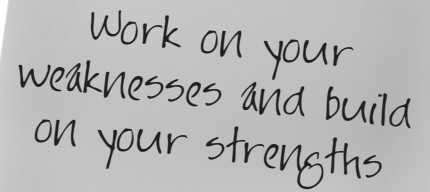 Work on your
weaknesses and build
on your strengths